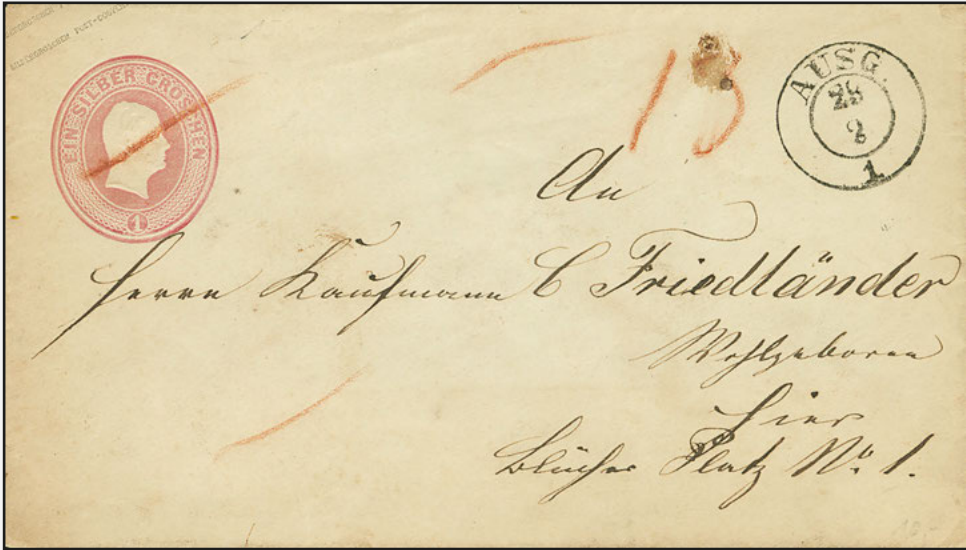 EIN SILBER GROSCHEN
1
13
AUSG.
28
2
1
An
Herrn Kaufmann C Friedländer
Wohlgeboren
hier
Blücher Platz No. 1.